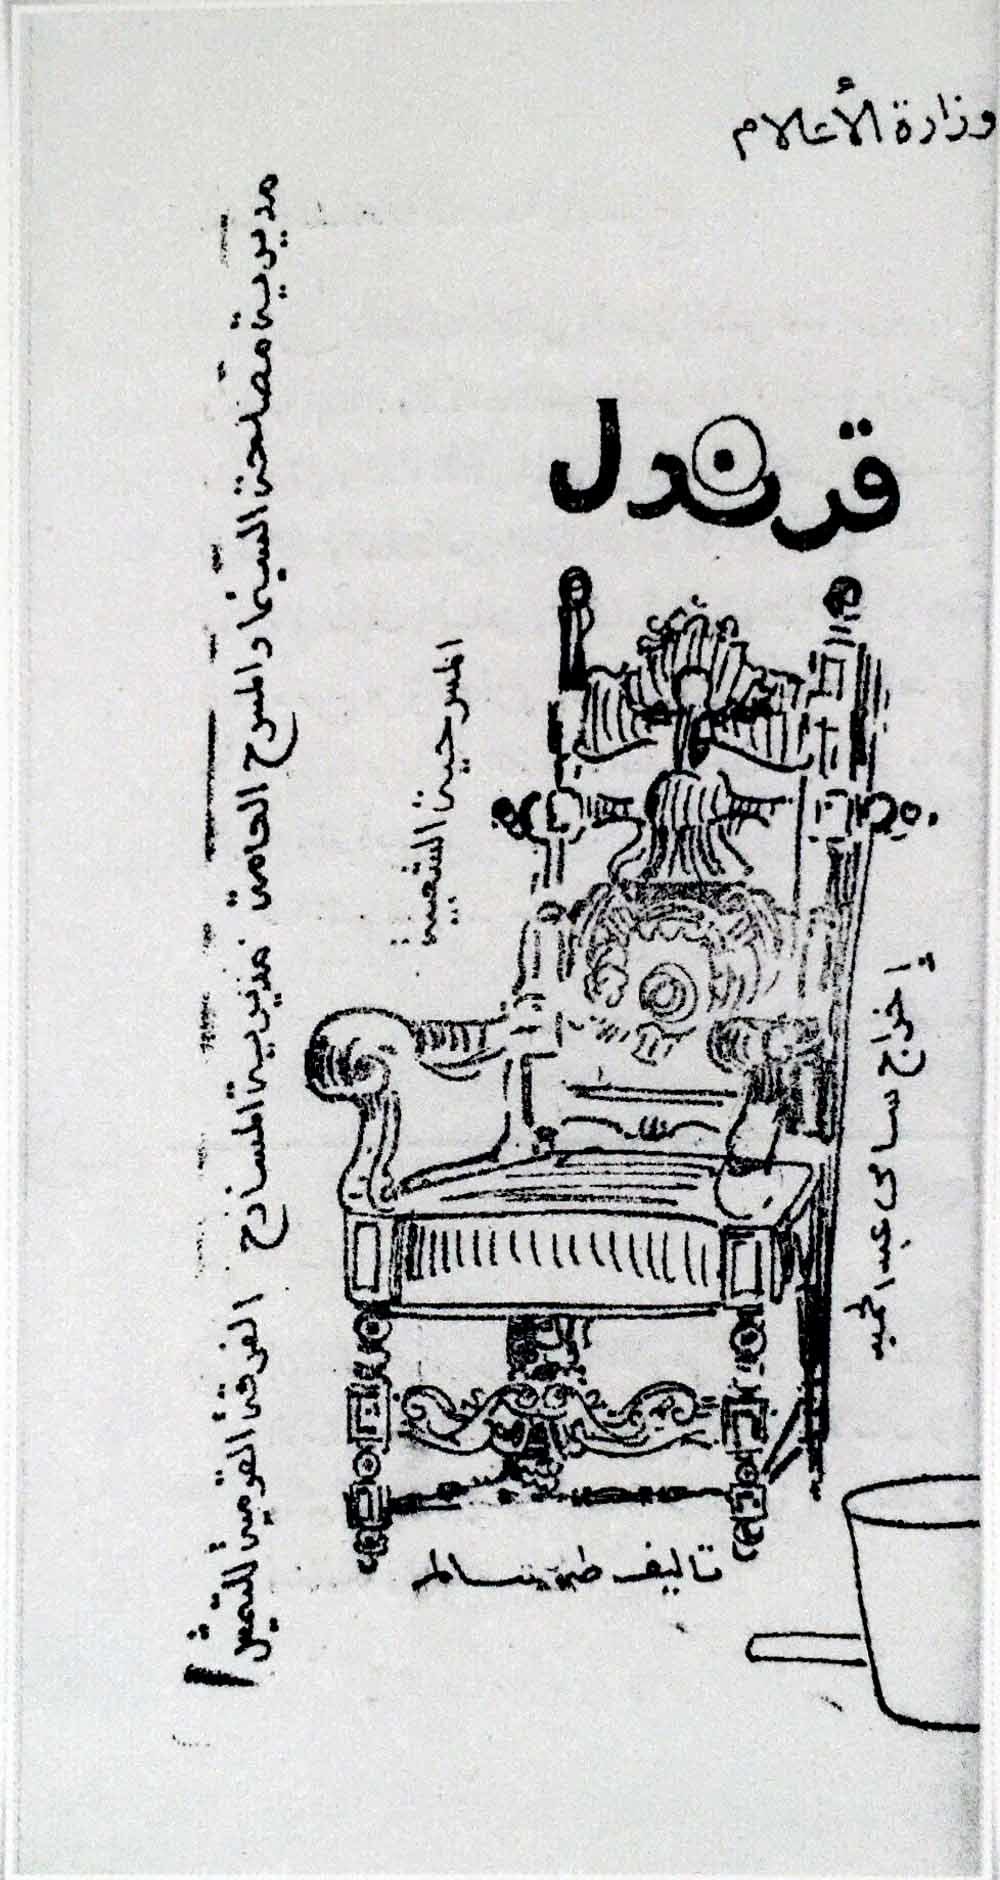 وزارة الأعلام
مديرية مصلحة السينما والمسرح العامة مديرية المسارح الفرقة القومية للتمثيل
قرندل
المسرحية الشعبية
إخراج سامي عبد الحميد
تاليف طه سالم